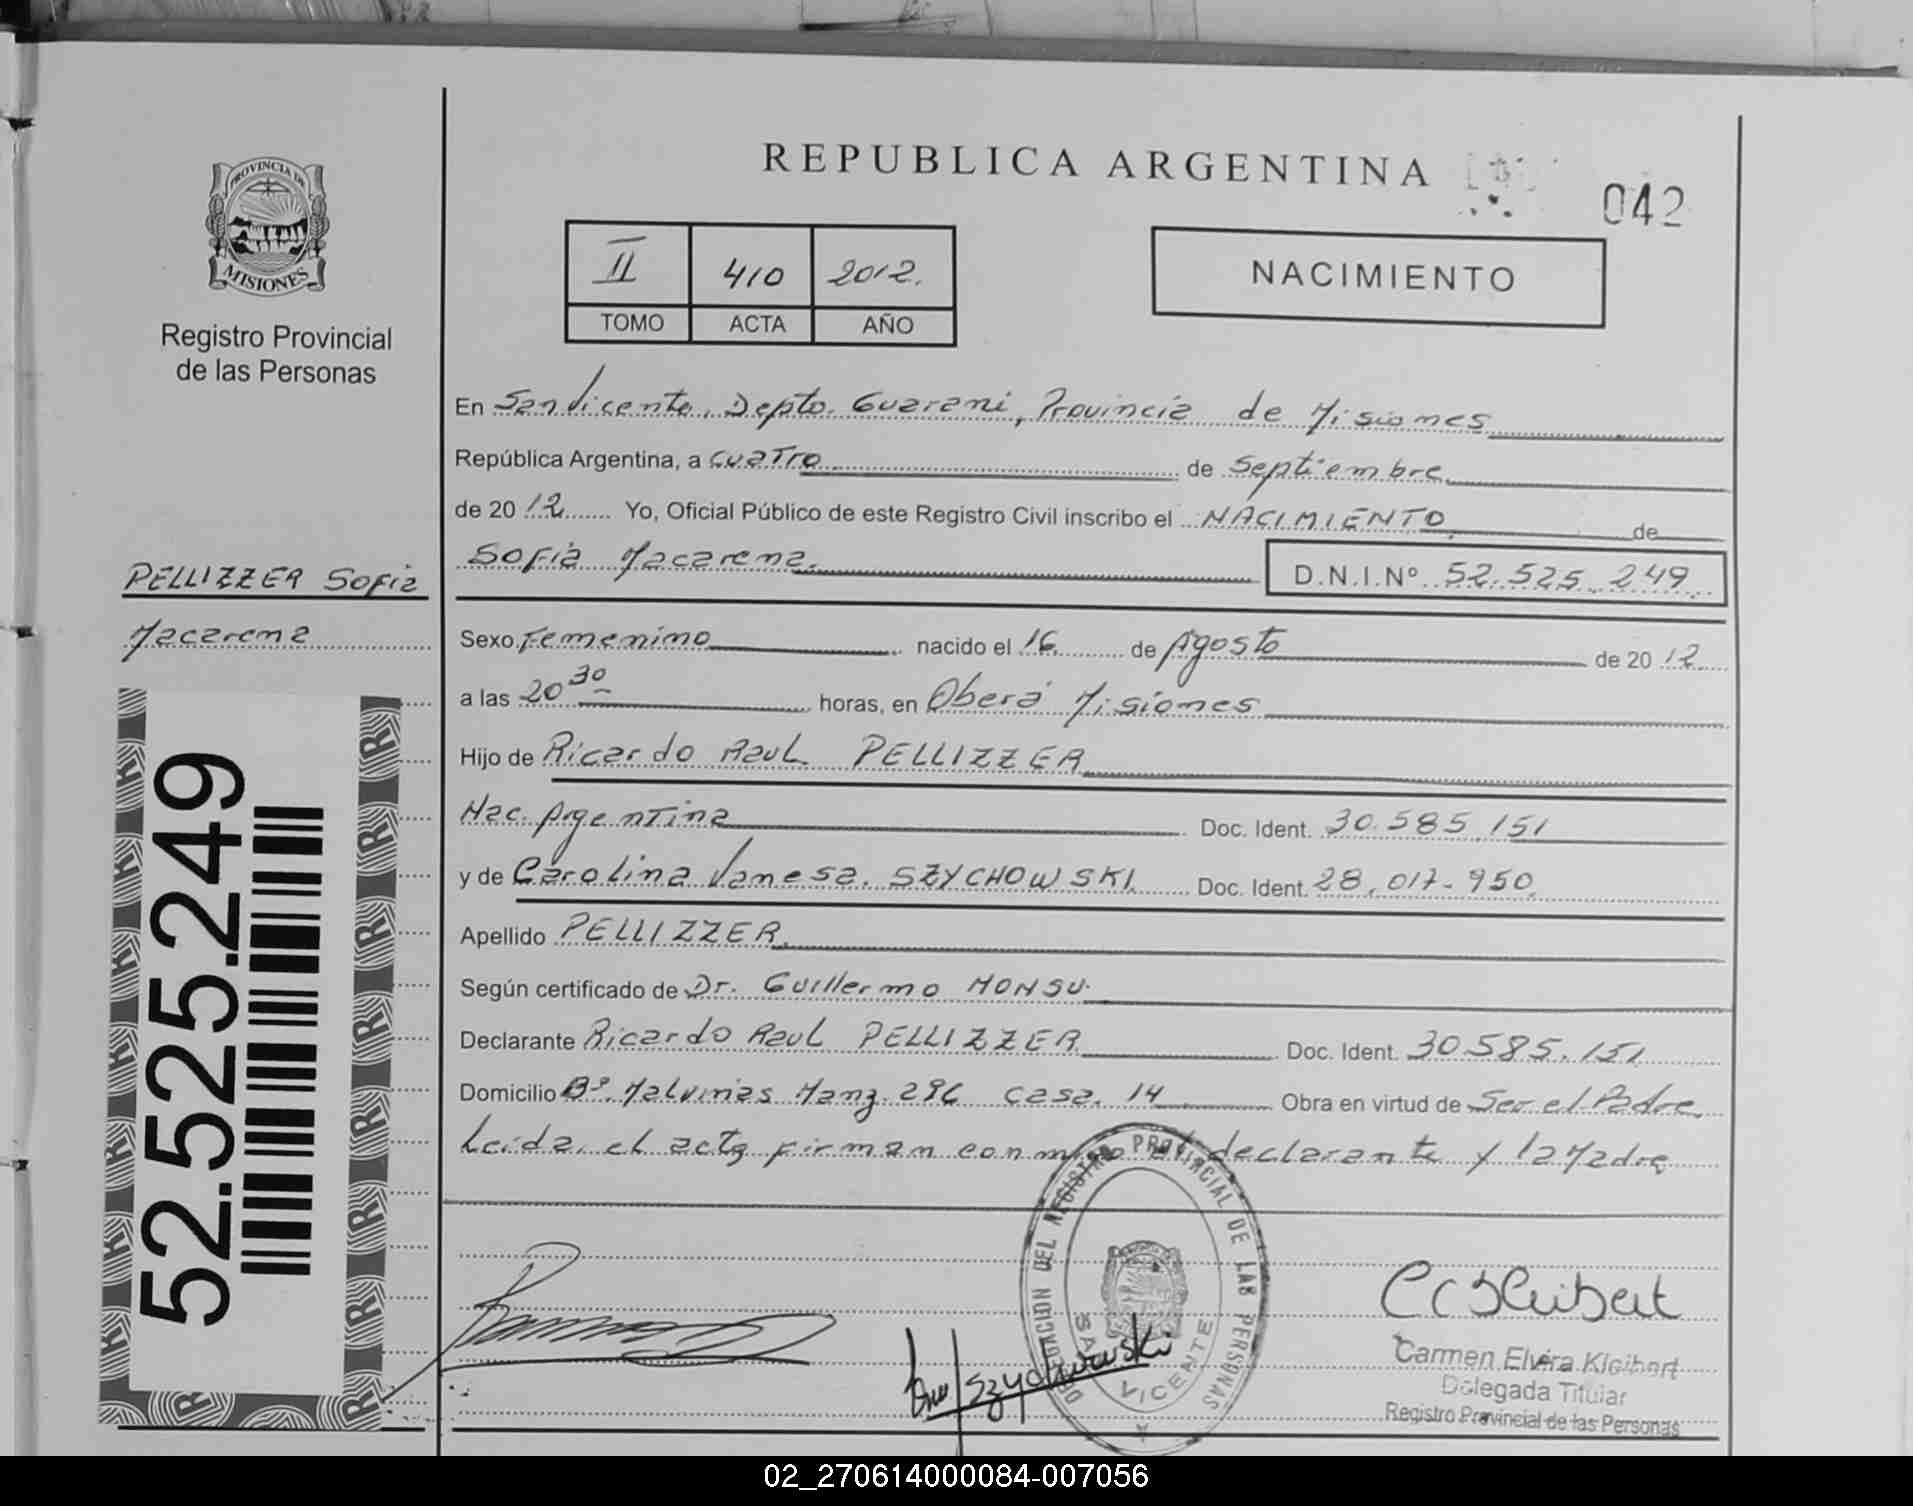 REPUBLICA ARGENTINA
042
PROVINCIA DE
MISIONES
Registro Provincial
de las Personas
II 410 2012.
TOMO ACTA AÑO
NACIMIENTO
En San Vicente, Depto. Guarani, Provincia de Misiones
República Argentina, a cuatro de Septiembre
de 2012 Yo, Oficial Público de este Registro Civil inscribo el NACIMIENTO de
Sofia Macarena. D.N.I.Nº 52.525.249
PELLIZZER Sofia
Macarena
Sexo Femenino nacido el 16 de Agosto de 2012
a las 20 30 horas, en Oberá Misiones
Hijo de Ricardo Raul PELLIZZER
Nac. Argentina Doc. Ident. 30.585.151
y de Carolina Vanesa SZYCHOWSKI Doc. Ident. 28.017.950
Apellido PELLIZZER
Según certificado de Dr. Guillermo MONSU.
Declarante Ricardo Raul PELLIZZER Doc. Ident. 30585.151
Domicilio Bº. Malvinas Manz. 296 casa. 14 Obra en virtud de Ser el Padre
Leida el acta firman conmigo el declarante y la Madre
52.525.249
DELEGACION DEL REGISTRO PROVINCIAL DE LAS PERSONAS
SAN VICENTE
Szychowski
Carmen Elvira Kleibert
Delegada Titular
Registro Provincial de las Personas
02_270614000084-007056